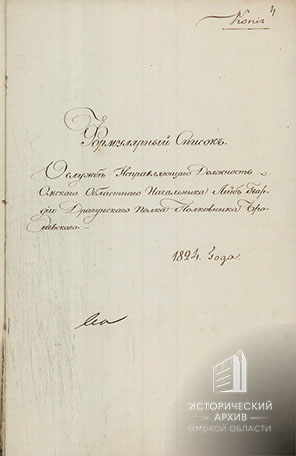 4
Копiя
Формулярный Списокъ.
О службѣ Исправляющаго Должность
Омскаго Областнаго Начальника Лейбъ Гвар-
діи Драгунскаго Полка Полковника Бро-
невскаго.
1824. Года.
ИСТОРИЧЕСКИЙ
АРХИВ
ОМСКОЙ ОБЛАСТИ